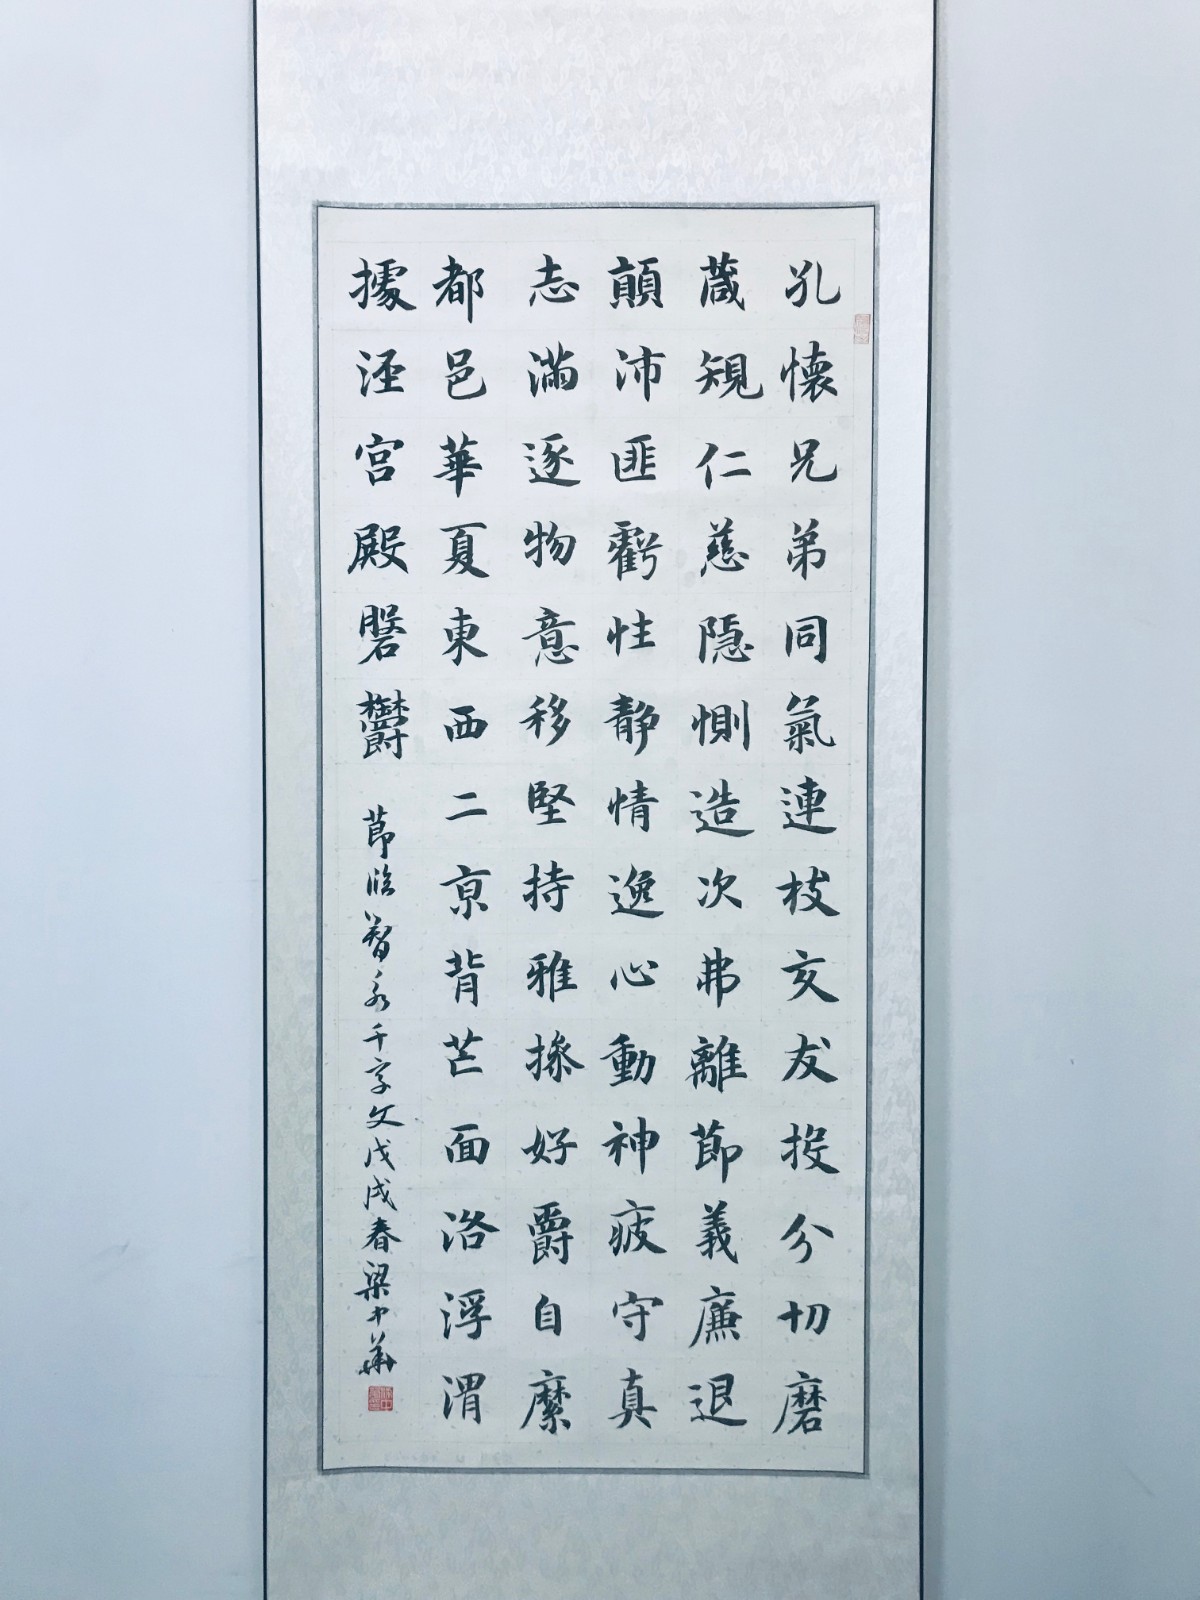 孔懷兄弟同氣連枝交友投分切磨
葴規仁慈隱惻造次弗離節義廉退
顛沛匪虧性静情逸心動神疲守真
志滿逐物意移堅持雅操好爵自縻
都邑華夏東西二京背芒面洛浮渭
據涇宮殿磐鬱
節臨智永千字文戊戌春梁中華